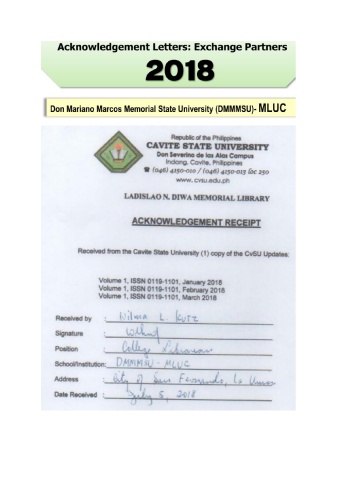 Acknowledgement Letters: Exchange Partners
2018
Don Mariano Marcos Memorial State University (DMMMSU)- MLUC
Republic of the Philippines
CAVITE STATE UNIVERSITY
Don Severino de las Alas Campus
Indang, Cavite, Philippines
☎ (046) 4150-010 / (046) 4150-013 loc 250
www.cvsu.edu.ph
LADISLAO N. DIWA MEMORIAL LIBRARY
ACKNOWLEDGEMENT RECEIPT
Received from the Cavite State University (1) copy of the CvSU Updates:
Volume 1, ISSN 0119-1101, January 2018
Volume 1, ISSN 0119-1101, February 2018
Volume 1, ISSN 0119-1101, March 2018
Received by : Wilma L. Kutz
Signature :
Position : College Librarian
School/Institution: DMMMSU - MLUC
Address : City of San Fernando, La Union
Date Received : July 5, 2018